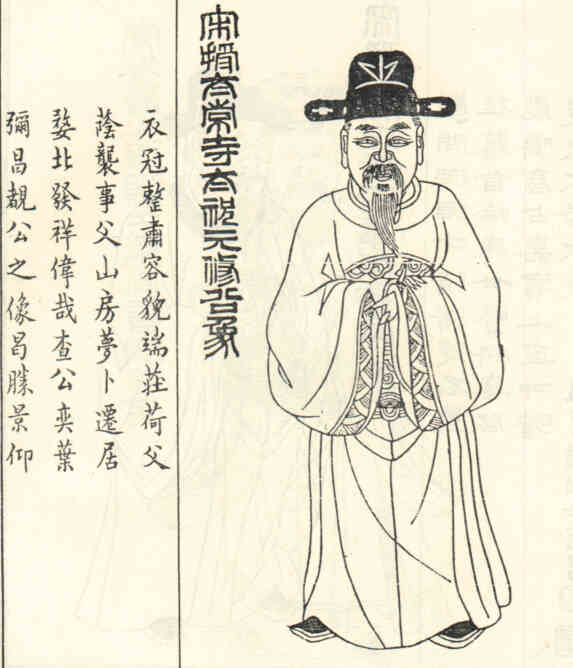 宋授太常寺太祝元修公象
衣冠整肅容貌端莊荷父
蔭襲事父山房夢卜遷居
婺北發祥偉哉查公奕葉
彌昌覩公之像曷勝景仰